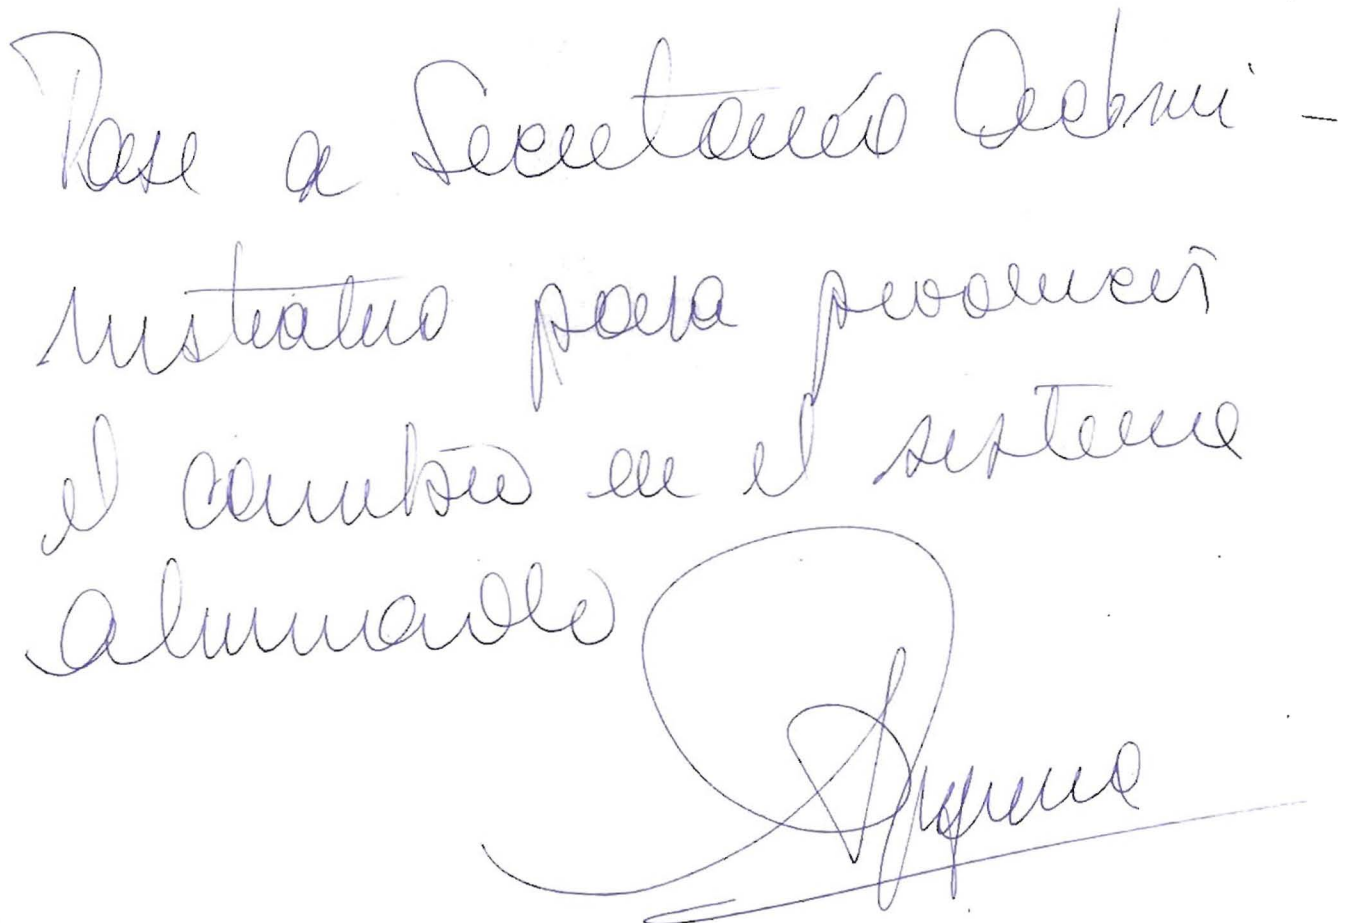 Pase a Secretaría Admi-
nistrativa para producir
el cambio en el sistema
alumnado